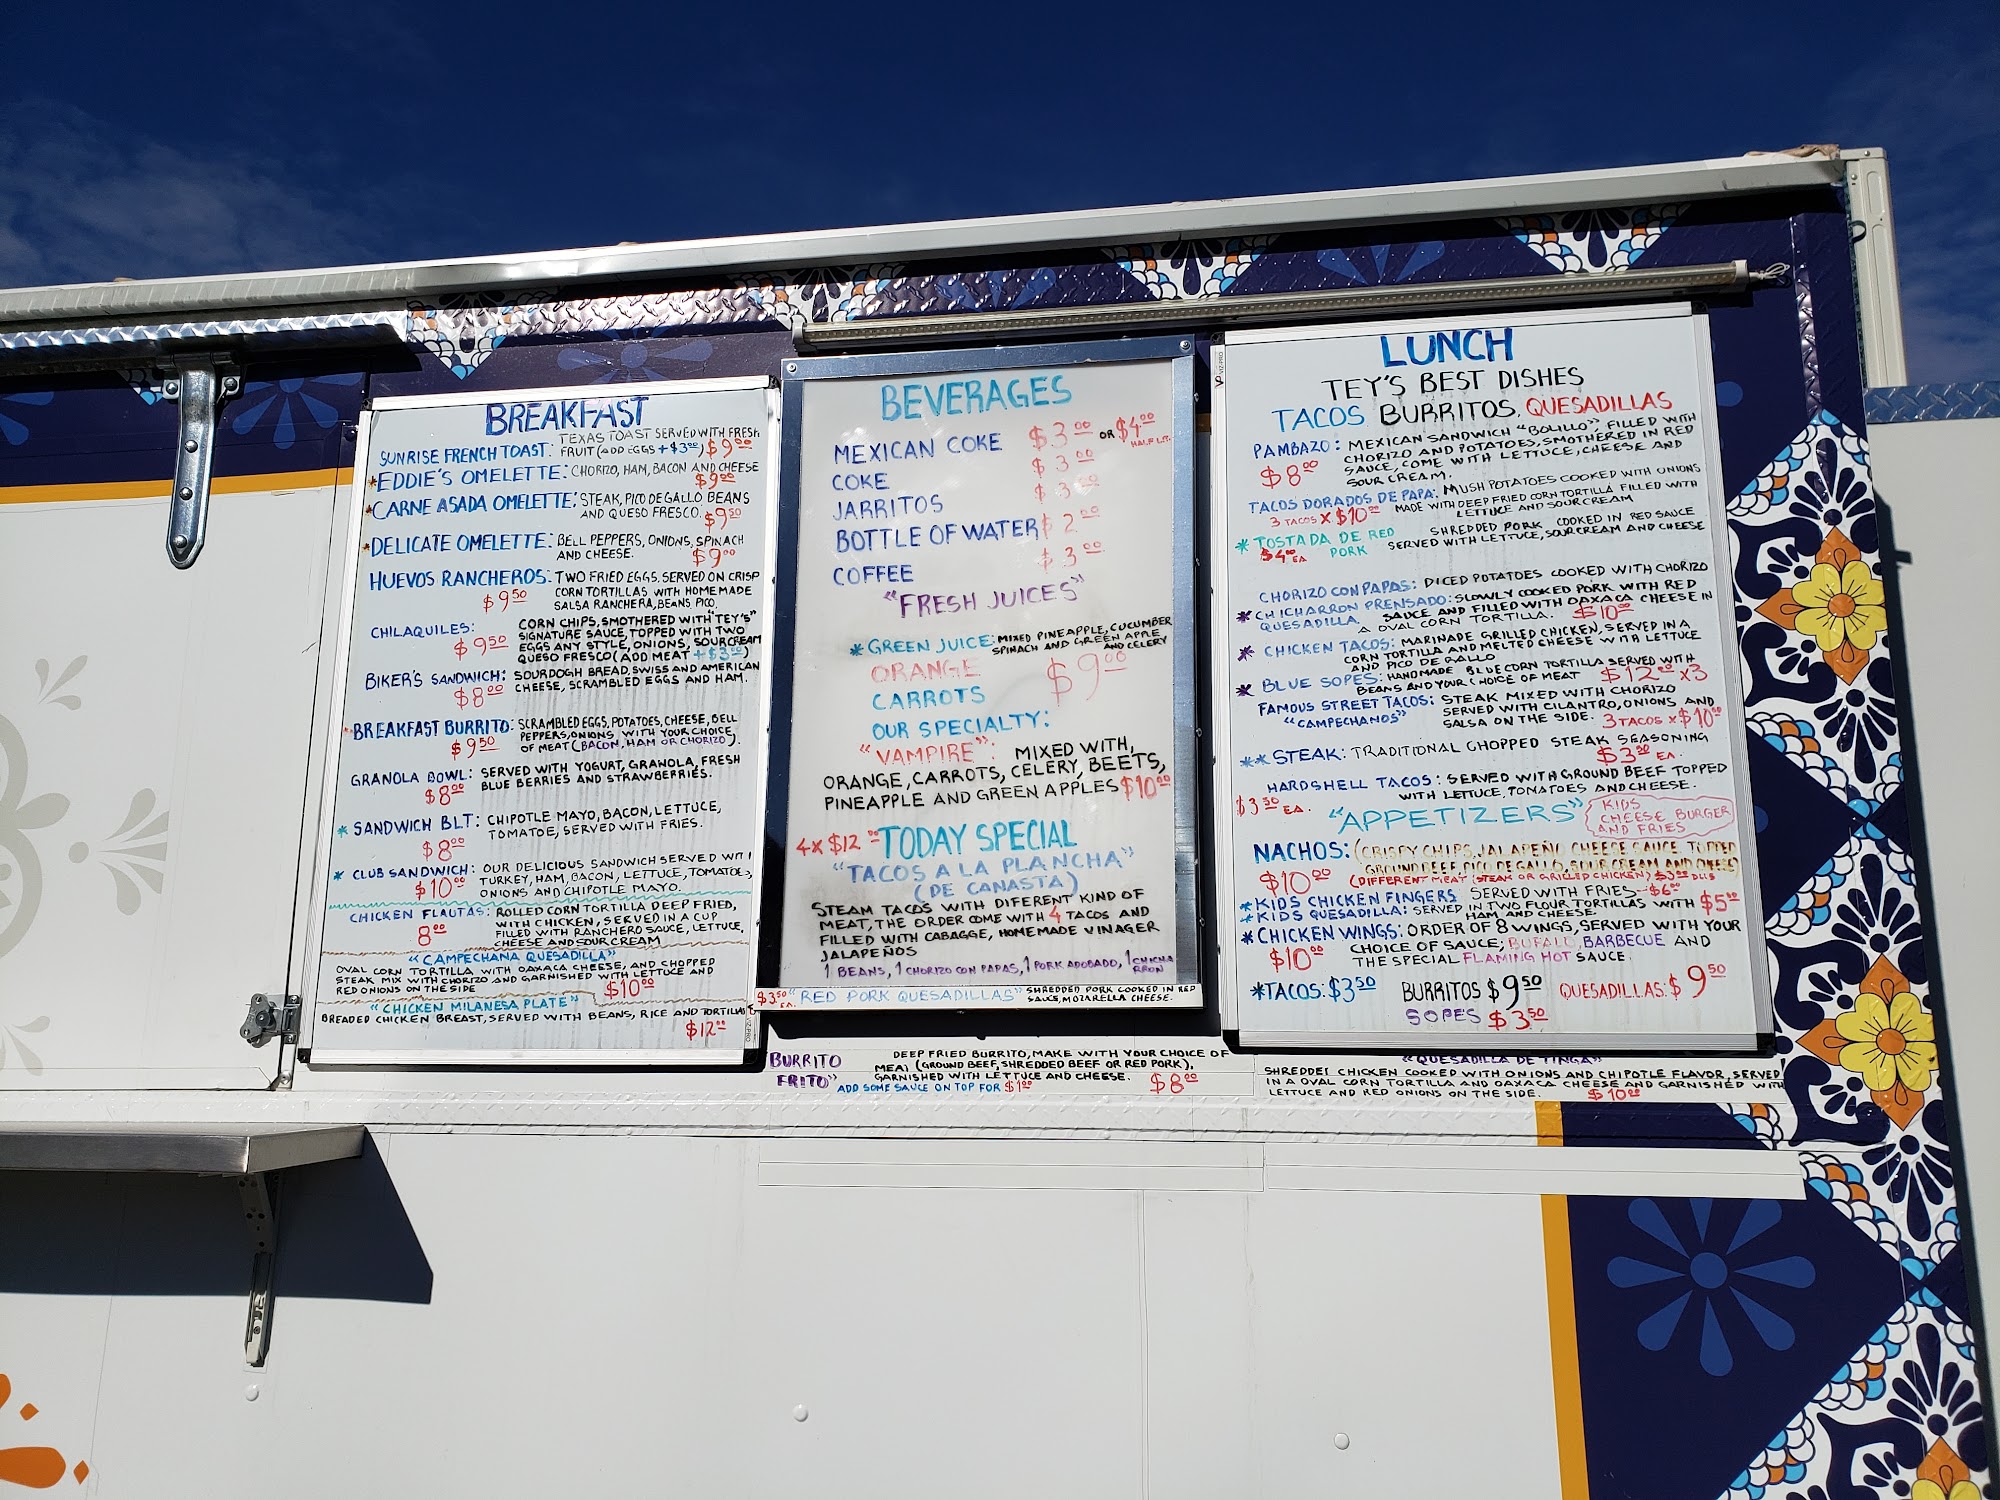 BREAKFAST
SUNRISE FRENCH TOAST: TEXAS TOAST SERVED WITH FRESH
FRUIT (ADD EGGS +$3.00) $9.00
*EDDIE'S OMELETTE: CHORIZO, HAM, BACON AND CHEESE
$9.00
*CARNE ASADA OMELETTE: STEAK, PICO DE GALLO BEANS
AND QUESO FRESCO. $9.50
*DELICATE OMELETTE: BELL PEPPERS, ONIONS, SPINACH
AND CHEESE. $9.00
HUEVOS RANCHEROS: TWO FRIED EGGS. SERVED ON CRISP
CORN TORTILLAS WITH HOMEMADE
$9.50 SALSA RANCHERA, BEANS PICO.
CHILAQUILES: CORN CHIPS, SMOTHERED WITH "TEY'S"
SIGNATURE SAUCE, TOPPED WITH TWO
$9.50 EGGS ANY STYLE, ONIONS, SOUR CREAM
QUESO FRESCO (ADD MEAT +$3.00)
BIKER'S SANDWICH: SOURDOGH BREAD, SWISS AND AMERICAN
$8.00 CHEESE, SCRAMBLED EGGS AND HAM.
*BREAKFAST BURRITO: SCRAMBLED EGGS, POTATOES, CHEESE, BELL
PEPPERS, ONIONS WITH YOUR CHOICE
$9.50 OF MEAT (BACON, HAM OR CHORIZO).
GRANOLA BOWL: SERVED WITH YOGURT, GRANOLA, FRESH
$8.00 BLUE BERRIES AND STRAWBERRIES.
*SANDWICH BLT: CHIPOTLE MAYO, BACON, LETTUCE,
$8.00 TOMATOE, SERVED WITH FRIES.
*CLUB SANDWICH: OUR DELICIOUS SANDWICH SERVED WITH
$10.00 TURKEY, HAM, BACON, LETTUCE, TOMATOE,
ONIONS AND CHIPOTLE MAYO.
CHICKEN FLAUTAS: ROLLED CORN TORTILLA DEEP FRIED,
8.00 WITH CHICKEN, SERVED IN A CUP
FILLED WITH RANCHERO SAUCE, LETTUCE,
CHEESE AND SOUR CREAM
"CAMPECHANA QUESADILLA"
OVAL CORN TORTILLA WITH OAXACA CHEESE, AND CHOPPED
STEAK MIX WITH CHORIZO AND GARNISHED WITH LETTUCE AND
RED ONIONS ON THE SIDE $10.00
"CHICKEN MILANESA PLATE"
BREADED CHICKEN BREAST, SERVED WITH BEANS, RICE AND TORTILLAS
$12.00
BEVERAGES
MEXICAN COKE $3.00 OR $4.00
HALF LIT.
COKE $3.00
JARRITOS $3.00
BOTTLE OF WATER $2.00
COFFEE $3.00
"FRESH JUICES"
*GREEN JUICE: MIXED PINEAPPLE, CUCUMBER
SPINACH AND GREEN APPLE
AND CELERY
ORANGE $9.00
CARROTS
OUR SPECIALTY:
"VAMPIRE": MIXED WITH,
ORANGE, CARROTS, CELERY, BEETS,
PINEAPPLE AND GREEN APPLES $10.00
4X $12.00 TODAY SPECIAL
"TACOS A LA PLANCHA"
(DE CANASTA)
STEAM TACOS WITH DIFERENT KIND OF
MEAT, THE ORDER COME WITH 4 TACOS AND
FILLED WITH CABAGGE, HOMEMADE VINAGER
JALAPEÑOS
1 BEANS, 1 CHORIZO CON PAPAS, 1 PORK ADOBADO, 1 CHICHA
RRON
$3.50 EA. "RED PORK QUESADILLAS" SHREDDED PORK COOKED IN RED
SAUCE, MOZARELLA CHEESE.
"BURRITO FRITO" DEEP FRIED BURRITO, MAKE WITH YOUR CHOICE OF
MEAT (GROUND BEEF, SHREDDED BEEF OR RED PORK),
GARNISHED WITH LETTUCE AND CHEESE. $8.00
ADD SOME SAUCE ON TOP FOR $1.00
LUNCH
TEY'S BEST DISHES
TACOS BURRITOS, QUESADILLAS
PAMBAZO: MEXICAN SANDWICH "BOLILLO", FILLED WITH
CHORIZO AND POTATOES, SMOTHERED IN RED
$8.00 SAUCE, COME WITH LETTUCE, CHEESE AND
SOUR CREAM.
TACOS DORADOS DE PAPA: MUSH POTATOES COOKED WITH ONIONS
3 TACOS X $10.00 MADE WITH DEEP FRIED CORN TORTILLA FILLED WITH
LETTUCE AND SOUR CREAM
*TOSTADA DE RED PORK SHREDDED PORK COOKED IN RED SAUCE
$4.00 EA SERVED WITH LETTUCE, SOUR CREAM AND CHEESE
CHORIZO CON PAPAS: DICED POTATOES COOKED WITH CHORIZO
*CHICHARRON PRENSADO: SLOWLY COOKED PORK WITH RED
QUESADILLA SAUCE AND FILLED WITH OAXACA CHEESE IN
A OVAL CORN TORTILLA. $10.00
*CHICKEN TACOS: MARINADE GRILLED CHICKEN, SERVED IN A
CORN TORTILLA AND MELTED CHEESE WITH LETTUCE
AND PICO DE GALLO
*BLUE SOPES: HANDMADE BLUE CORN TORTILLA SERVED WITH
BEANS AND YOUR CHOICE OF MEAT $12.00 X3
FAMOUS STREET TACOS: STEAK MIXED WITH CHORIZO
"CAMPECHANOS" SERVED WITH CILANTRO, ONIONS AND
SALSA ON THE SIDE. 3 TACOS X $10.50
**STEAK: TRADITIONAL CHOPPED STEAK SEASONING
$3.50 EA.
HARDSHELL TACOS: SERVED WITH GROUND BEEF TOPPED
$3.50 EA. WITH LETTUCE, TOMATOES AND CHEESE.
"APPETIZERS"
KIDS
CHEESE BURGER
AND FRIES
NACHOS: (CRISPY CHIPS, JALAPEÑO CHEESE SAUCE, TOPPED
GROUND BEEF PICO DE GALLO, SOUR CREAM AND CHEESE)
$10.00 (DIFFERENT MEAT (STEAK OR GRILLED CHICKEN) $3.00 PLUS
*KIDS CHICKEN FINGERS SERVED WITH FRIES - $6.00
*KIDS QUESADILLA: SERVED IN TWO FLOUR TORTILLAS WITH $5.50
HAM AND CHEESE.
*CHICKEN WINGS: ORDER OF 8 WINGS, SERVED WITH YOUR
$10.00 CHOICE OF SAUCE; BUFALO, BARBECUE AND
THE SPECIAL FLAMING HOT SAUCE.
*TACOS: $3.50 BURRITOS $9.50 QUESADILLAS: $9.50
SOPES $3.50
"QUESADILLA DE TINGA"
SHREDDED CHICKEN COOKED WITH ONIONS AND CHIPOTLE FLAVOR, SERVED
IN A OVAL CORN TORTILLA AND OAXACA CHEESE AND GARNISHED WITH
LETTUCE AND RED ONIONS ON THE SIDE. $10.00